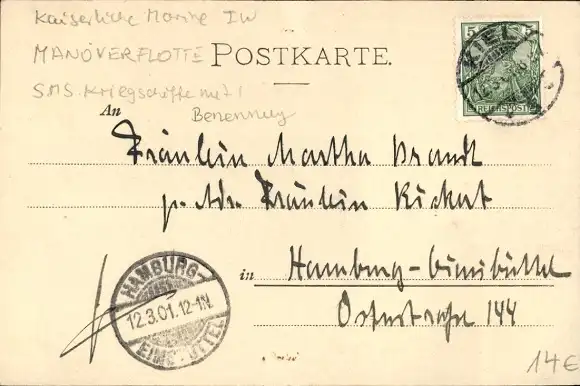 Kaiserliche Marine IW
MANÖVERFLOTTE
SMS Kriegschiffe mit 1
Benennung
POSTKARTE.
5 5
REICHSPOST
KIEL
An
Fräulein Martha Brandt
p. Adr. Fräulein Rickert
in Hamburg-Eimsbüttel
Osterstraße 144
HAMBURG-
12.3.01.12-1N.
EIMSBÜTTEL
14€